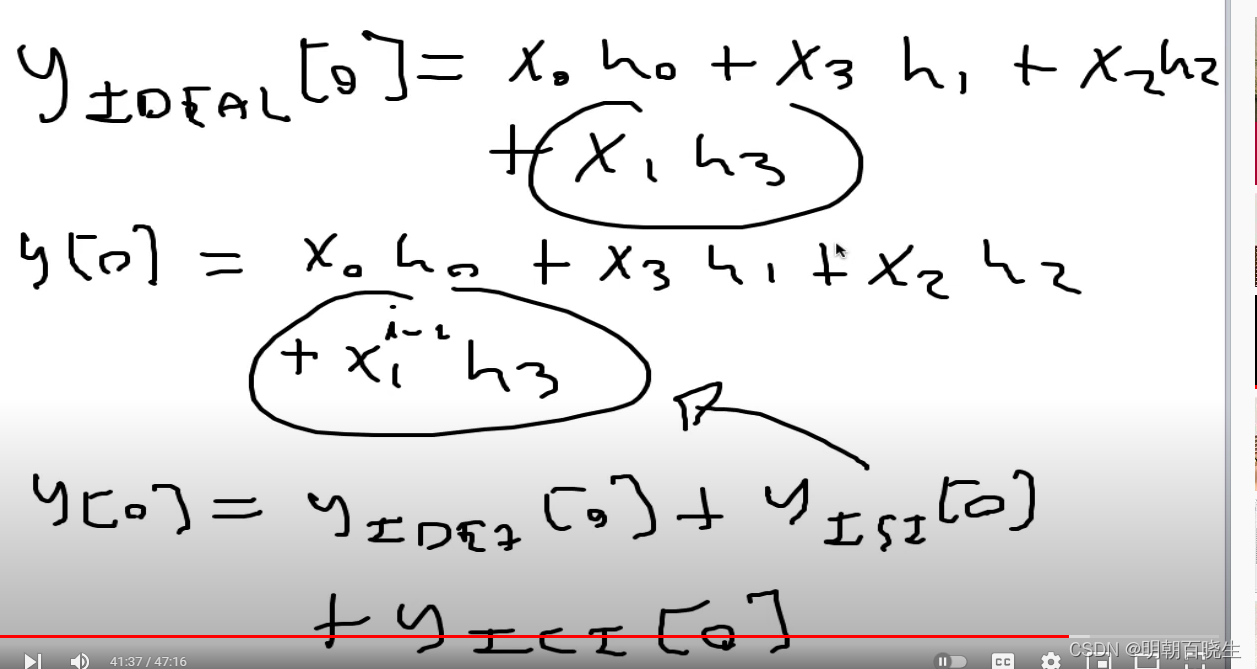 y_IDEAL[0] = x₀ h₀ + x₃ h₁ + x₂ h₂
+ x₁ h₃
y[0] = x₀ h₀ + x₃ h₁ + x₂ h₂
+ x₁^{i-1} h₃
y[0] = y_IDEA[0] + y_ISI[0]
+ y_ICI[0]
41:37 / 47:16
CC
CSDN @明朝百晓生